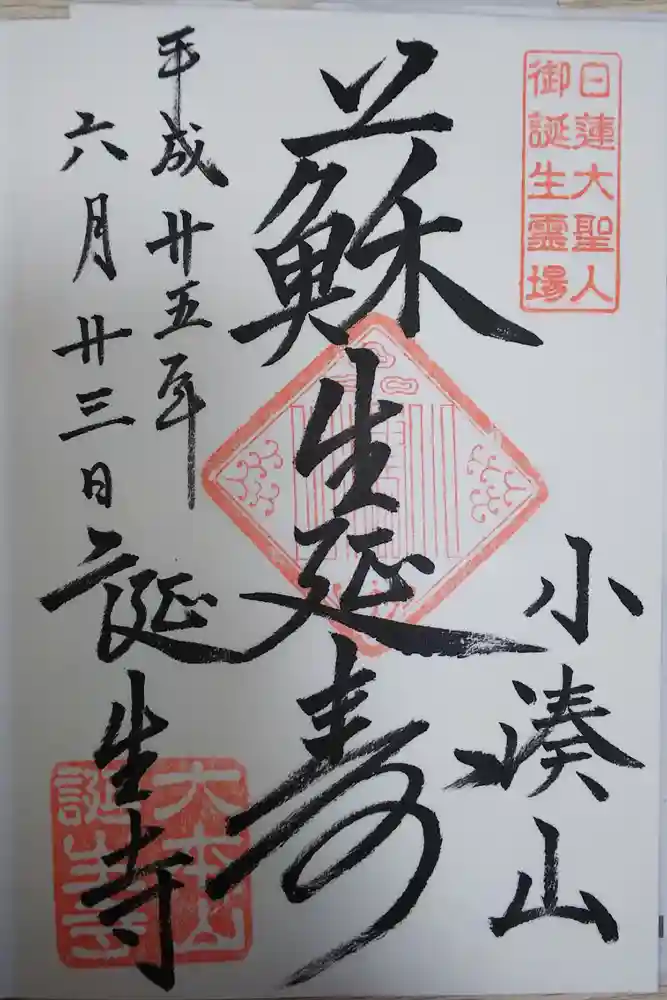 日蓮大聖人
御誕生霊場
小湊山
蘇生延寿
平成廿五年
六月廿三日
誕生寺
大本山
誕生寺